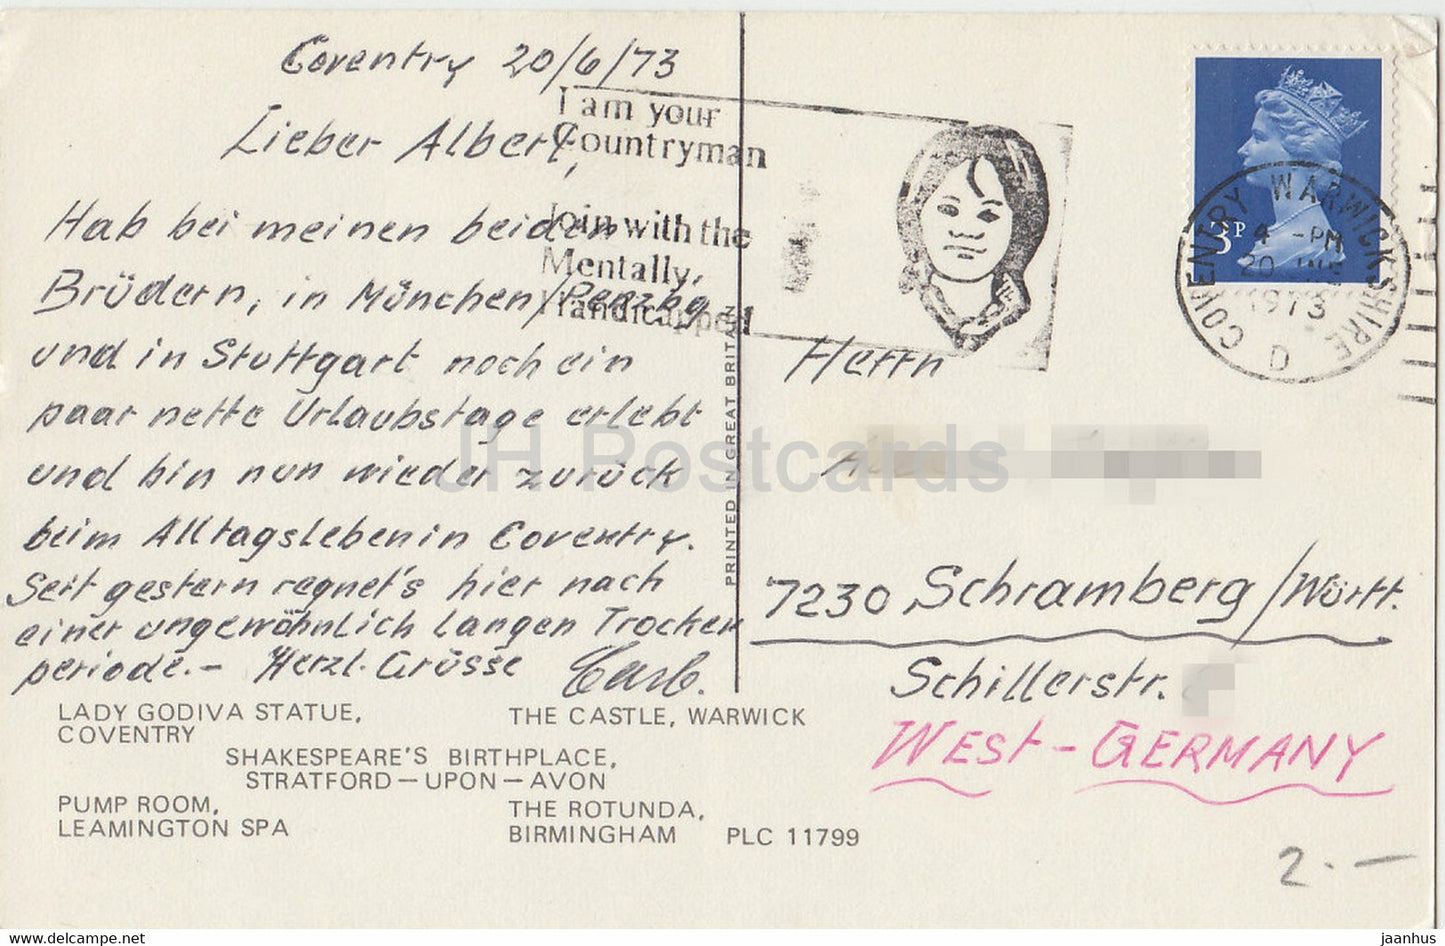 Coventry 20/6/73
Lieber Albert,
Hab bei meinen beiden
Brüdern, in München/Penzbg
und in Stuttgart noch ein
paar nette Urlaubstage erlebt
und bin nun wieder zurück
beim Alltagsleben in Coventry.
Seit gestern regnet's hier nach
einer ungewöhnlich langen Trocken
periode.- Herzl. Grüsse
I am your
Countryman
Join with the
Mentally,
Handicapped
LADY GODIVA STATUE,
COVENTRY
THE CASTLE, WARWICK
SHAKESPEARE'S BIRTHPLACE,
STRATFORD-UPON-AVON
PUMP ROOM,
LEAMINGTON SPA
THE ROTUNDA,
BIRMINGHAM PLC 11799
PRINTED IN GREAT BRITAIN
3P
COVENTRY WARWICKSHIRE
4 - PM
20
1973
D
Herrn
7230 Schramberg/Württ.
Schillerstr.
WEST-GERMANY
2.-
JH Postcards
hippostcard.com
jaanhus